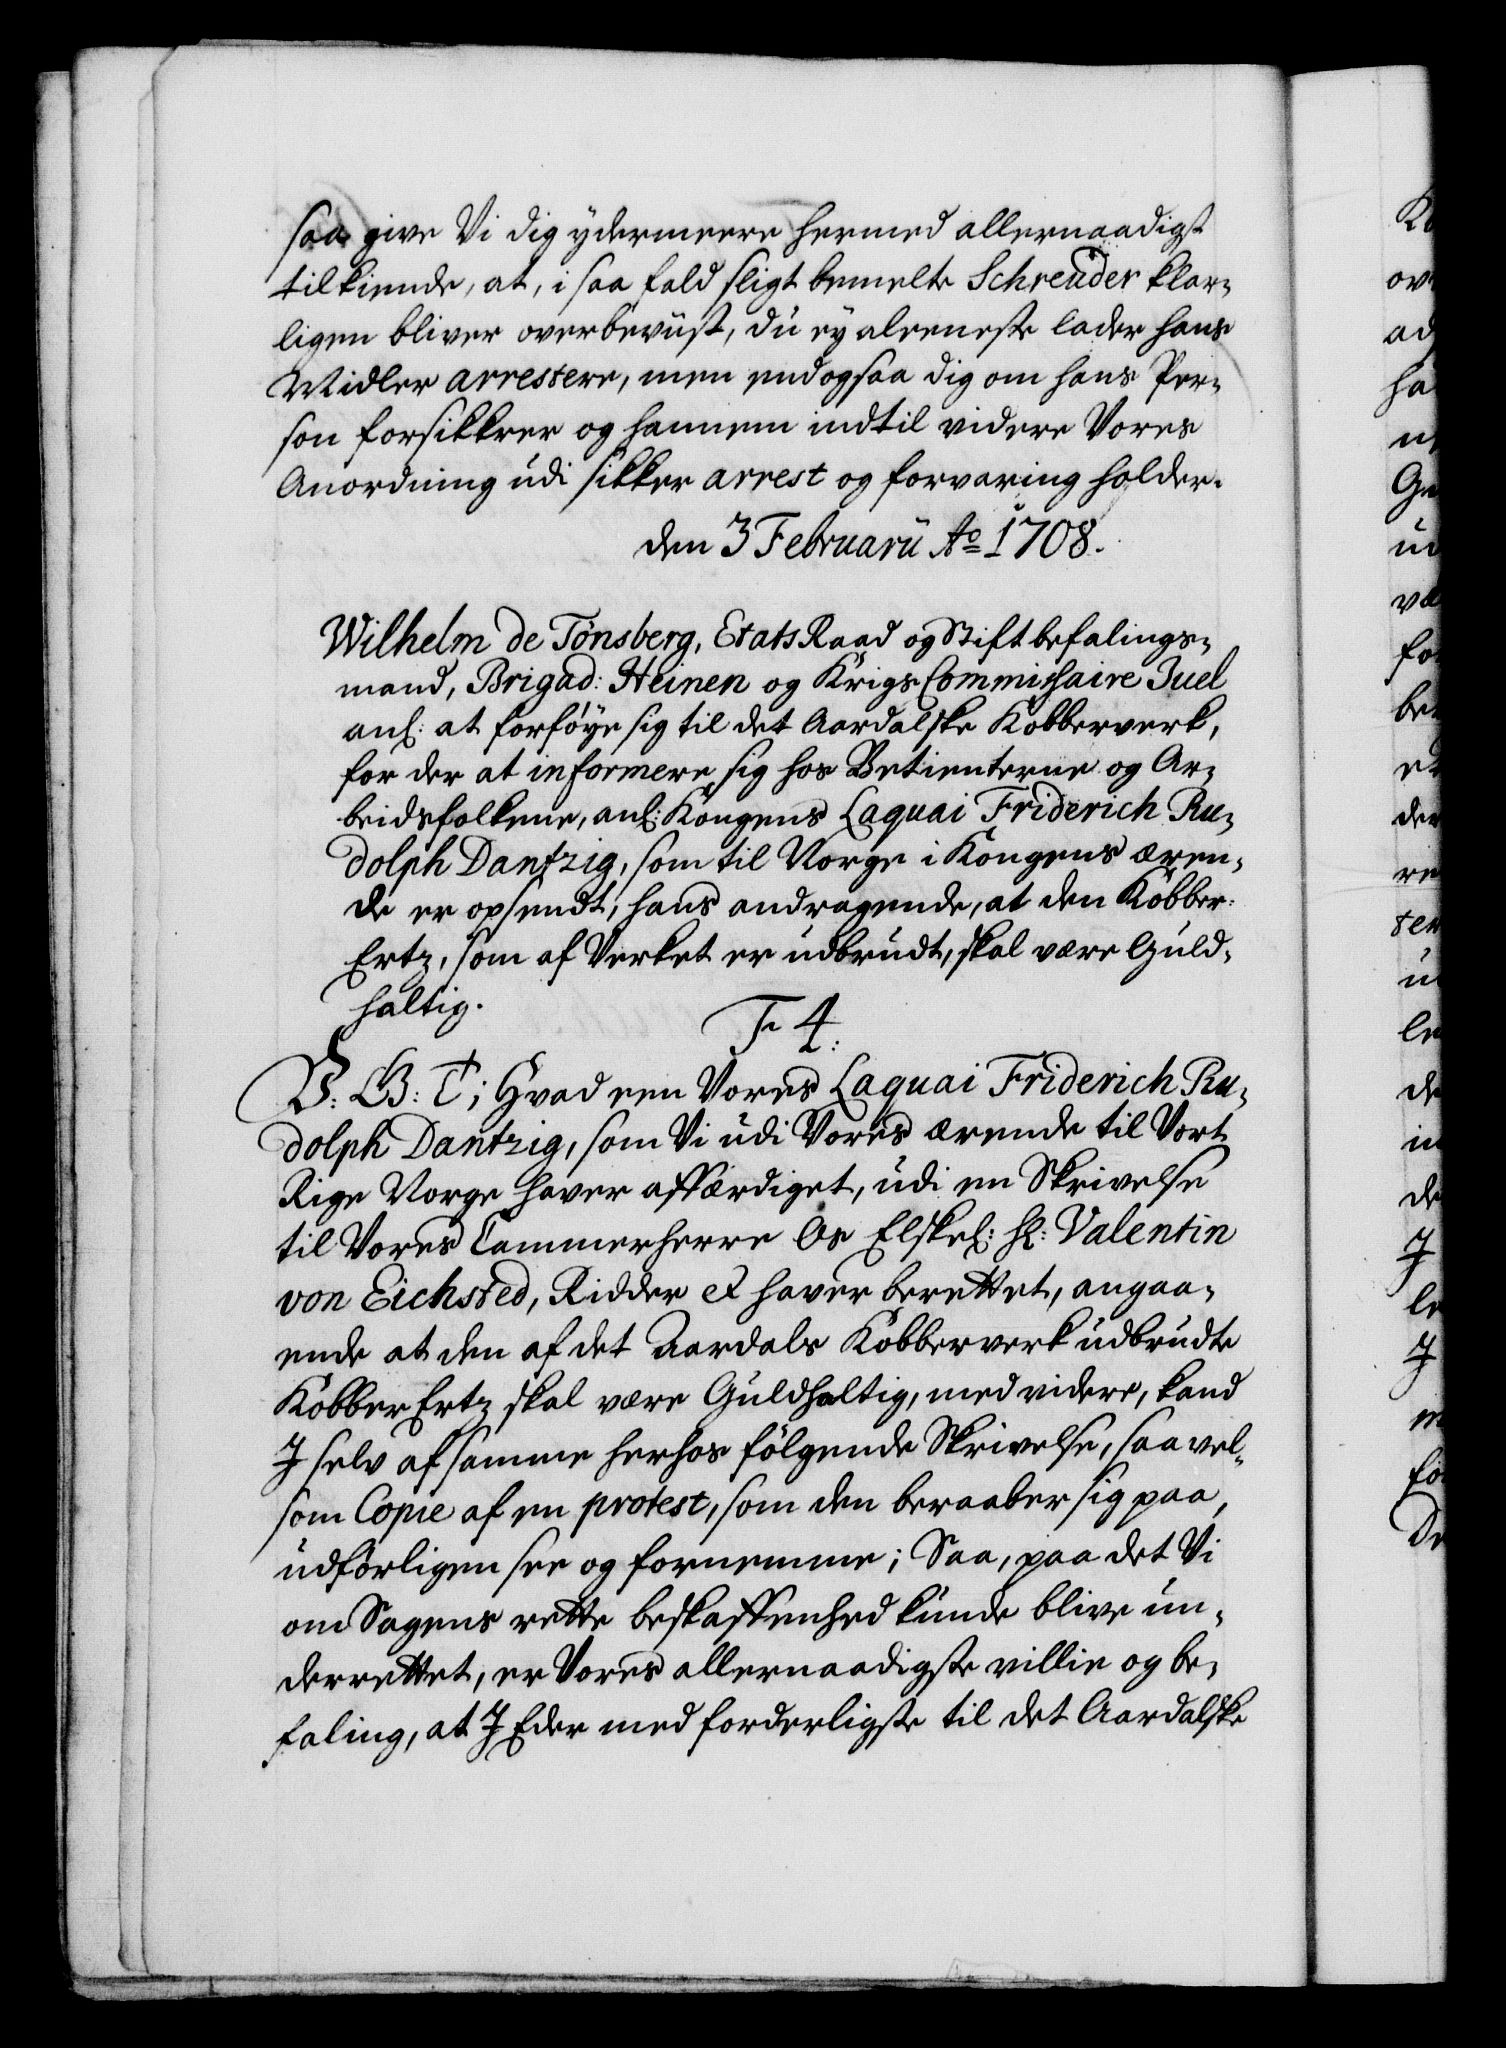 saa give Vi dig ydermeere hermed allernaadigst
tilkiende, at, i saa fald sligt bemelte Schreuder klar,
ligen bliver overbeviist, du ey aleeneste lader hans
Midler arrestere, men endogsaa dig om hans Per,
son forsikkrer og hannem indtil videre Vores
Anordning udi sikker arrest og forvaring holder.
den 3 Februarii Ao 1708.
Wilhelm de Tønsberg, Etats Raad og Stiftbefalings,
mand, Brigad: Heinen og Krigs Commissaire Juel
anl: at forføye sig til det Aardalske Kobberverk,
for der at informere sig hos Betienterne og Ar,
beidsfolkene, anl: Kongens Laquai Friderich Ru,
dolph Dantzig, som til Norge i Kongens æren,
de er opsendt, hans andragende, at den Kobber:
Ertz, som af Verket er udbrudt, skal være Guld,
haltig.
F 4:
V: G: T; Hvad een Vores Laquai Friderich Ru,
dolph Dantzig, som Vi udi Vores ærende til Vort
Rige Norge haver affærdiget, udi en Skrivelse
til Vores Cammerherre Os Elskel: Hr: Valentin
von Eichsted, Ridder et haver berettet, angaa,
ende at den af det Aardals Kobberverk udbrudte
Kobber Ertz skal være Guldhaltig, med videre, kand
I selv af samme herhos følgende Skrivelse, saavel,
som Copie af en protest, som den beraaber sig paa,
udførligen see og fornemme; Saa, paa det Vi
om Sagens rette beskaffenhed kunde blive un,
derrettet, er Vores allernaadigste villie og be,
faling, at I Eder med forderligste til det Aardalske